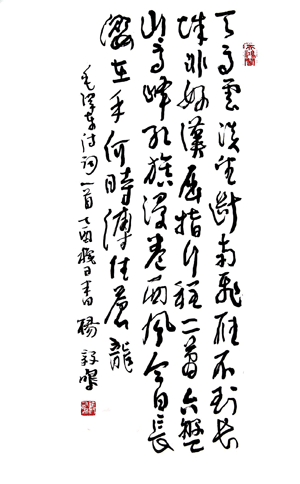 天高雲淡望斷南飛雁不到長
城非好漢屈指行程二萬六盤
山高峰紅旗漫卷西風今日長
纓在手何時縛住蒼龍
毛澤東詩詞一首乙酉秋日書楊